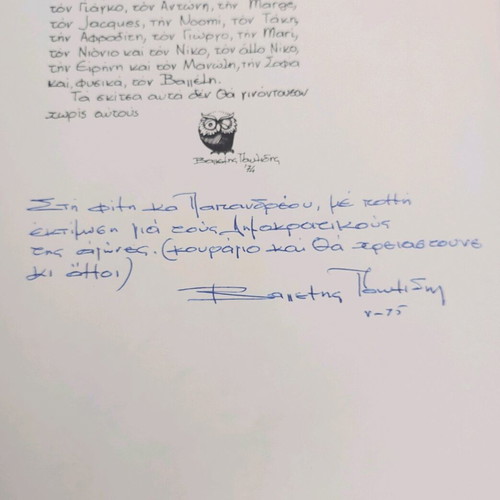 τόν Γιάγκο, τόν Αντώνη, τήν Marge,
τόν Jacques, τήν Noomi, τόν Τάκη,
τήν Αφροδίτη, τόν Γιώργο, τήν Mari,
τόν Νιόνιο και τόν Νίκο, τόν άλλο Νίκο,
τήν Ειρήνη και τόν Μανώλη, τήν Σοφία
και, φυσικά, τον Βαγγέλη.
Τα σκίτσα αυτά δέν θά γινόντουσαν
χωρίς αυτούς
Στη φίλη κα Παπανδρέου, μέ πολλή
εκτίμηση γιά τούς Δημοκρατικούς
της αγώνες. (κουράγιο και θά χρειαστούνε
κι άλλοι)
V-75